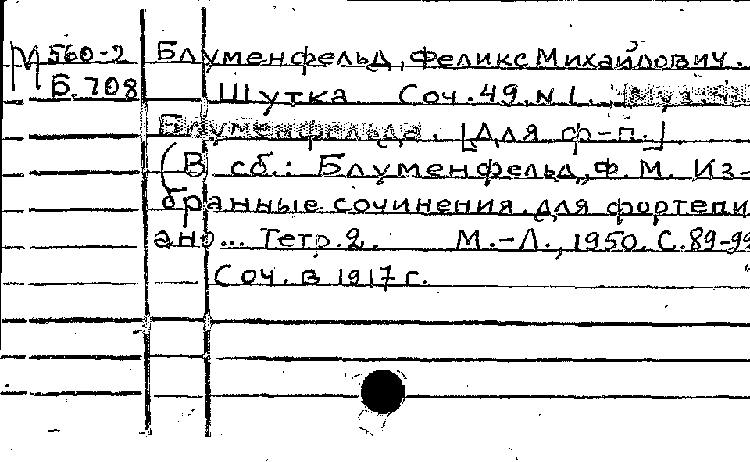 М 560-2 Блуменфельд, Феликс Михайлович.
Б. 708 Шутка Соч. 49. N 1. Муз.
Блуменфельда. [Для ф-п.]
(В сб.: Блуменфельд, Ф. М. Из-
бранные сочинения для фортепи
ано... Тетр. 2. М.-Л., 1950. С. 89-99
Соч. в 1917 г.